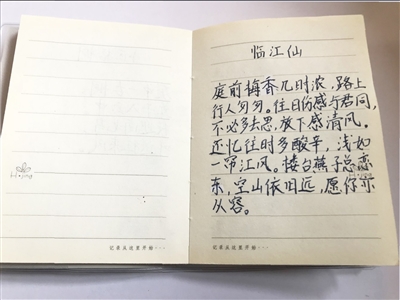 临江仙
庭前梅香几时浓，路上
行人匆匆。往日伤感与君同，
不必多去思，放下感清风。
还忆往时多酸辛，浅如
一帘江风。楼台燕子总恋
东，空山依旧远，愿你亦
从容。
记录从这里开始···
记录从这里开始···